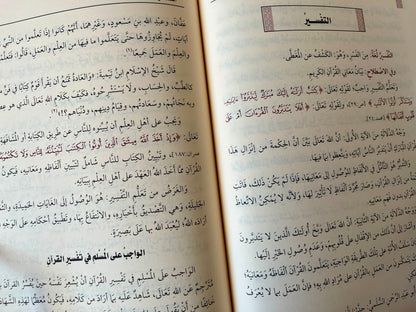 التفسير
التفسير لغةً: من الفَسْر، وهو: الكشفُ عن المُغطَّى.
وفي الاصطلاح: بيانُ معاني القرآن الكريم.
وتعلُّمُ التفسير واجبٌ لقوله تعالى: ﴿كِتَابٌ أَنزَلْنَاهُ إِلَيْكَ مُبَارَكٌ لِّيَدَّبَّرُوا آيَاتِهِ
ولقوله تعالى: ﴿أَفَلَا يَتَدَبَّرُونَ الْقُرْآنَ أَمْ عَلَى
قُلُوبٍ أَقْفَالُهَا﴾
وجه الدلالة من الآية الأولى: أن الله تعالى بيّن أن الحكمة من إنزال هذا
القرآن
لأن
فاتت
الحكمة من إنزال القرآن، وصار مجرد ألفاظ لا تأثير لها، ولأنه لا يمكن الاتعاظ
بما في القرآن بدون فهم معانيه.
ووجه الدلالة من الآية الثانية: أن الله تعالى وبّخ أولئك الذين لا يتدبرون
القرآن، وأشار إلى أن ذلك من الإقفال على قلوبهم، وعدم وصول الخير إليها.
وكان سلف الأمة على تلك الطريقة الواجبة، يتعلمون القرآن ألفاظه ومعانيه؛
لأنهم بذلك يتمكنون من العمل بالقرآن على مراد الله به؛ فإن العمل بما لا يُعرف
معناه غير ممكن.
عفان، وعبد الله بن مسعود، وغيرهما، أنهم كانوا إذا تعلموا من النبي
آيات، لم يتجاوزوها حتى يتعلموا ما فيها من العلم والعمل، قالوا: فتعلمنا
والعلم والعمل جميعًا
قال شيخ الإسلام ابن تيمية: والعادة تمنع أن يقرأ قوم كتابًا في فن
كالطب والحساب، ولا يستشرحوه، فكيف بكلام الله تعالى الذي هو
وبه نجاتهم، وسعادتهم، وقيام دينهم، ودنياهم؟
ويجب على أهل العلم، أن يبيّنوه للناس عن طريق الكتابة أو المشافهة
تعالى: ﴿وَإِذْ أَخَذَ اللَّهُ مِيثَاقَ الَّذِينَ أُوتُوا الْكِتَابَ لَتُبَيِّنُنَّهُ لِلنَّاسِ وَلَا تَكْتُمُونَهُ
وتبيين الكتاب للناس شامل لتبيين ألفاظه ومعانيه، فيكون
القرآن، مما أخذ الله العهد على أهل العلم ببيانه.
والغرض من تعلم التفسير: هو الوصول إلى الغايات الحميدة
الجليلة، وهي التصديق بأخباره، والانتفاع بها، وتطبيق أحكامه على الوجه
أراده الله؛ ليُعبد الله بها على بصيرة.
الواجب على المسلم في تفسير القرآن
الواجب على المسلم في تفسير القرآن أن يُشعر نفسه حين يفسر القرآن
مترجم عن الله تعالى، شاهد عليه بما أراد من كلامه، فيكون معظمًا لهذه الشهادة